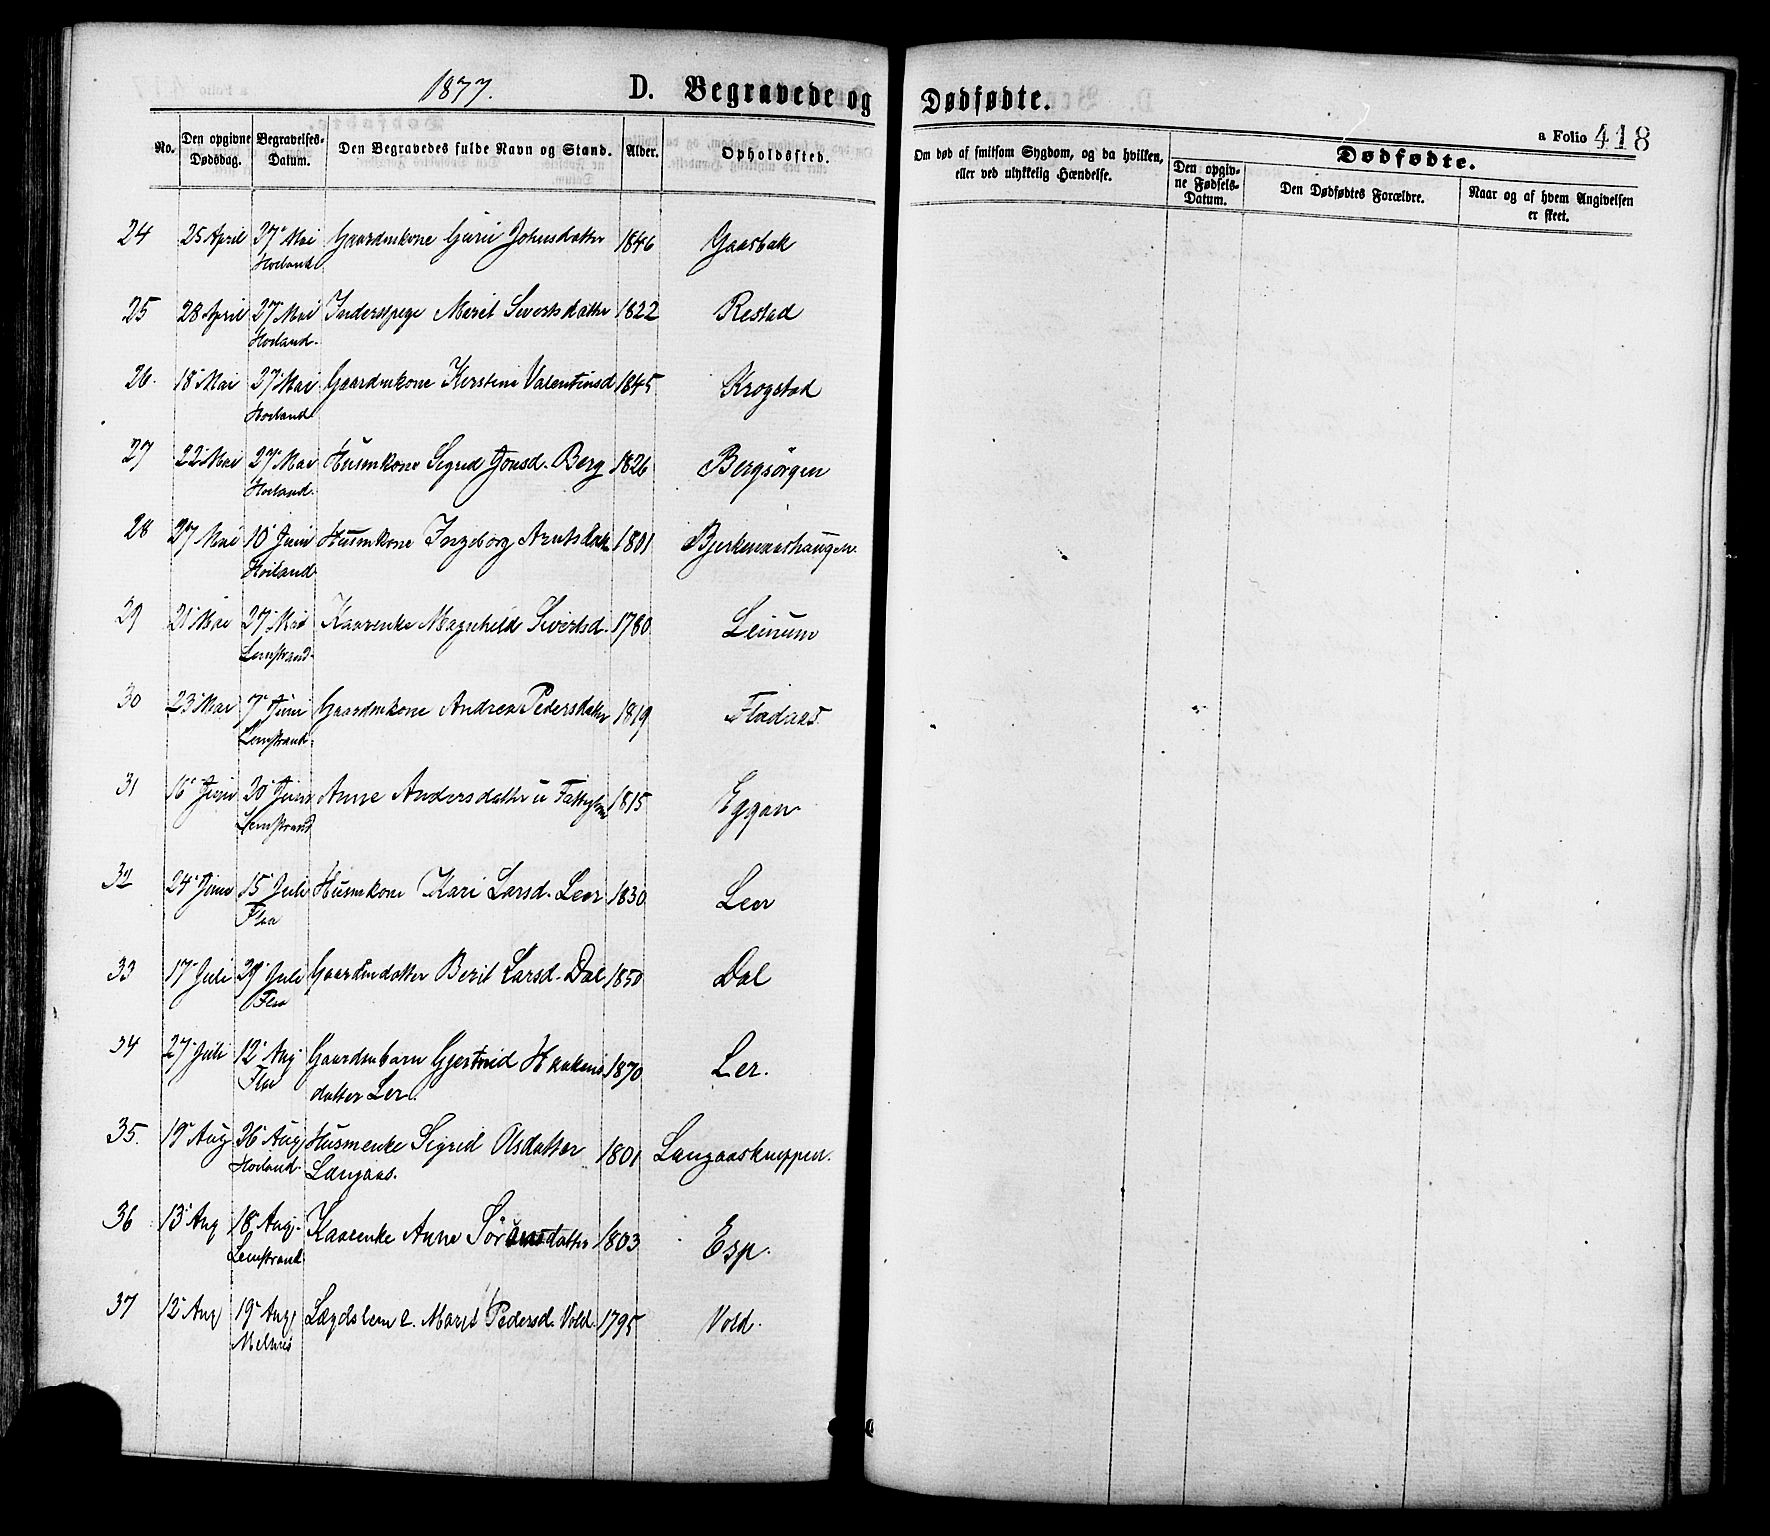 1877. D. Begravede og Dødfødte.
a Folio 418
No. Den opgivne Dødsdag. Begravelses-Datum. Den Begravedes fulde Navn og Stand. Alder. Opholdssted.
Om død af smitsom Sygdom, og da hvilken, eller ved ulykkelig Hændelse.
Dødfødte.
Den opgivne Fødsels-Datum. Den Dødfødtes Forældre. Naar og af hvem Angivelsen er skeet.
24 25 April 27 Mai Gaardmkone Guru Johnsdatter 1846 Gaasbak
Horland
25 28 April 27 Mai Inderstpige Marit Sivertsdatter 1822 Restad
Horland.
26. 18 Mai 27 Mai Gaardmkone Kerstine Valentinsd 1845 Krogstad
Horland
27 22 Mai 27 Mai Husmkone Sigrid Jonsd. Berg 1826 Bergsørgen
Horland.
28 27 Mai 10 Juni Husmkone Ingeborg Arntsdatt 1801 Bjerkenaashaugen.
Hoiland
29 21 Mai 27 Mai Kaarenke Magnhild Sivertsd. 1780 Leinum
Lenstrand.
30 23 Mai 7 Juni Gaardmkone Andrea Pedersdatter 1819 Fladaas
Lenstrand.
31 16 Juni 20 Juni Anne Andersdatter u Fattiglem 1815 Eggan
Lenstrand
32 24 Juni 15 Juli Husmkone Kari Larsd. Leer 1830 Leer
Flaa
33 17 Juli 29 Juli Gaardmdatter Berit Larsd. Dal 1850 Dal
Flaa
34 27 Juli 12 Aug Gaardmbarn Gjertrud Haakens 1870 Ler.
Flaa datter Ler.
35. 19 Aug 26 Aug Husmenke Sigrid Olsdatter 1801 Langaasknippen.
Horland. Langaas.
36 13 Aug 18 Aug. Kaarenke Anne Sørensdatter 1803 Esp.
Lenstrand
37 12 Aug 19 Aug Lægdslem e. Marit Pedersd. Vold. 1795 Vold.
Melhus